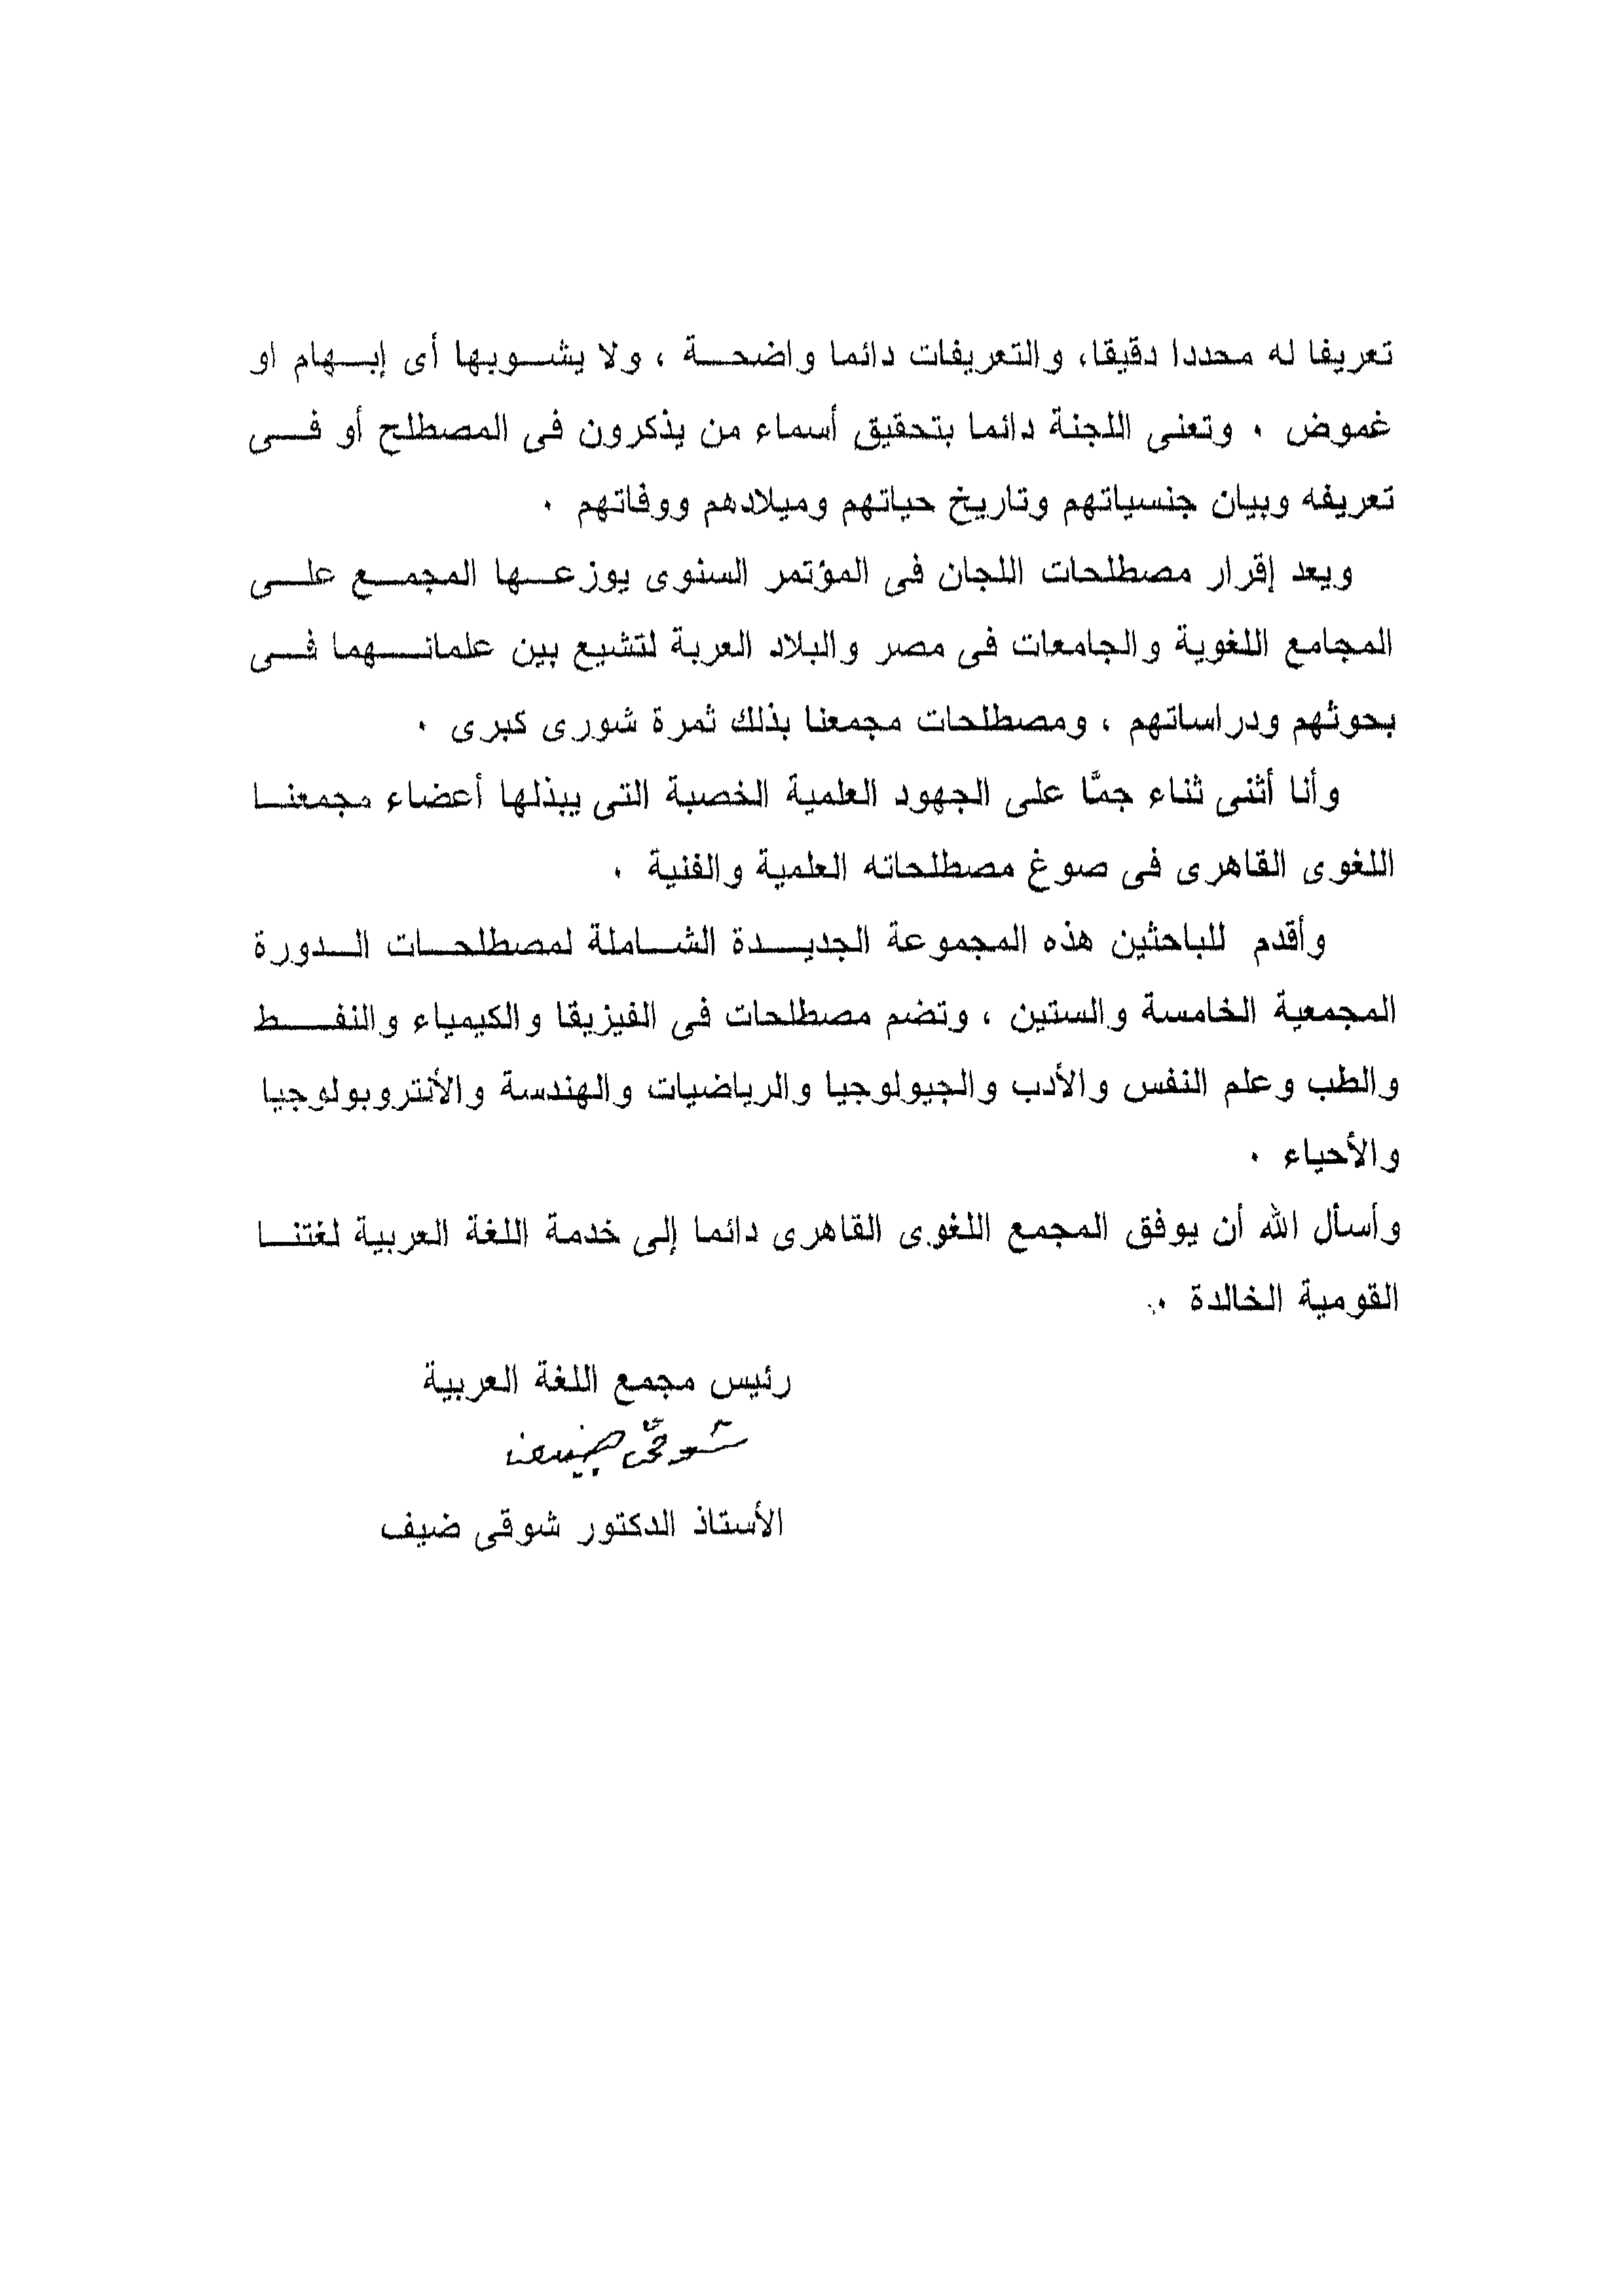 تعريفا له محددا دقيقا، والتعريفات دائما واضحة ، ولا يشوبها أى إبهام او
غموض . وتعنى اللجنة دائما بتحقيق أسماء من يذكرون فى المصطلح أو فى
تعريفه وبيان جنسياتهم وتاريخ حياتهم وميلادهم ووفاتهم .
وبعد إقرار مصطلحات اللجان فى المؤتمر السنوى يوزعها المجمع على
المجامع اللغوية والجامعات فى مصر والبلاد العربة لتشيع بين علمائهما فى
بحوثهم ودراساتهم ، ومصطلحات مجمعنا بذلك ثمرة شورى كبرى .
وأنا أثنى ثناء جمَّا على الجهود العلمية الخصبة التى يبذلها أعضاء مجمعنا
اللغوى القاهرى فى صوغ مصطلحاته العلمية والفنية .
وأقدم للباحثين هذه المجموعة الجديدة الشاملة لمصطلحات الدورة
المجمعية الخامسة والستين ، وتضم مصطلحات فى الفيزيقا والكيمياء والنفط
والطب وعلم النفس والأدب والجيولوجيا والرياضيات والهندسة والأنتروبولوجيا
والأحياء .
وأسأل الله أن يوفق المجمع اللغوى القاهرى دائما إلى خدمة اللغة العربية لغتنا
القومية الخالدة .
رئيس مجمع اللغة العربية
شوقى ضيف
الأستاذ الدكتور شوقى ضيف